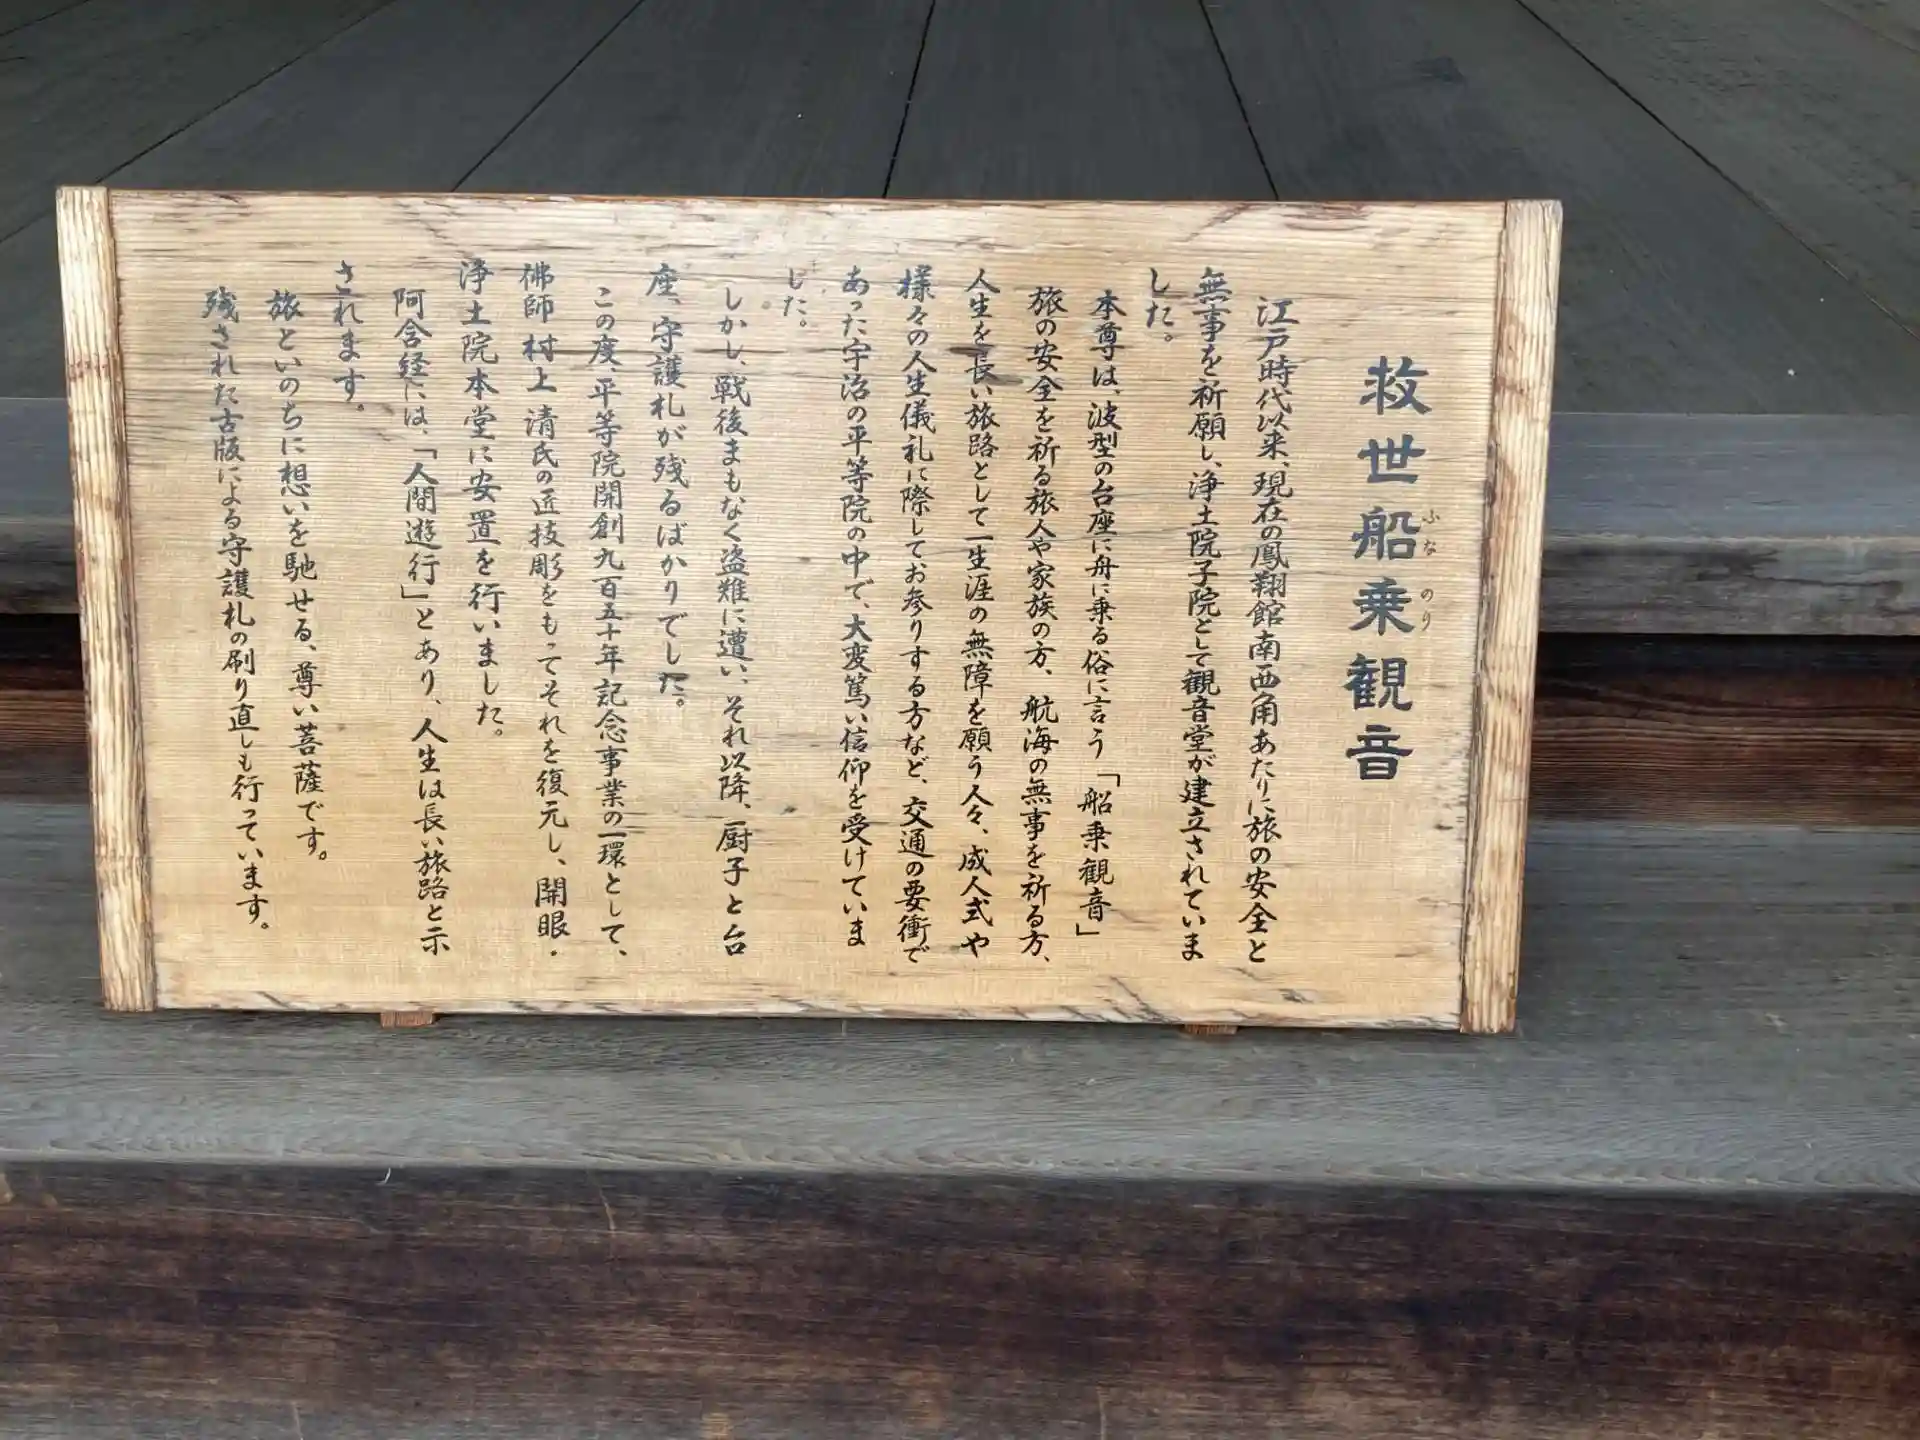 救世船乗観音
ふな
のり
江戸時代以来、現在の鳳翔館南西角あたりに旅の安全と
無事を祈願し、浄土院子院として観音堂が建立されていま
した。
本尊は、波型の台座に舟に乗る俗に言う「船乗観音」
旅の安全を祈る旅人や家族の方、航海の無事を祈る方、
人生を長い旅路として一生涯の無障を願う人々、成人式や
様々の人生儀礼に際してお参りする方など、交通の要衝で
あった宇治の平等院の中で、大変篤い信仰を受けていま
した。
しかし、戦後まもなく盗難に遭い、それ以降、厨子と台
座、守護札が残るばかりでした。
この度、平等院開創九百五十年記念事業の一環として、
佛師 村上 清氏の匠技彫をもってそれを復元し、開眼・
浄土院本堂に安置を行いました。
阿含経には、「人間遊行」とあり、人生は長い旅路と示
されます。
旅といのちに想いを馳せる、尊い菩薩です。
残された古版による守護札の刷り直しも行っています。